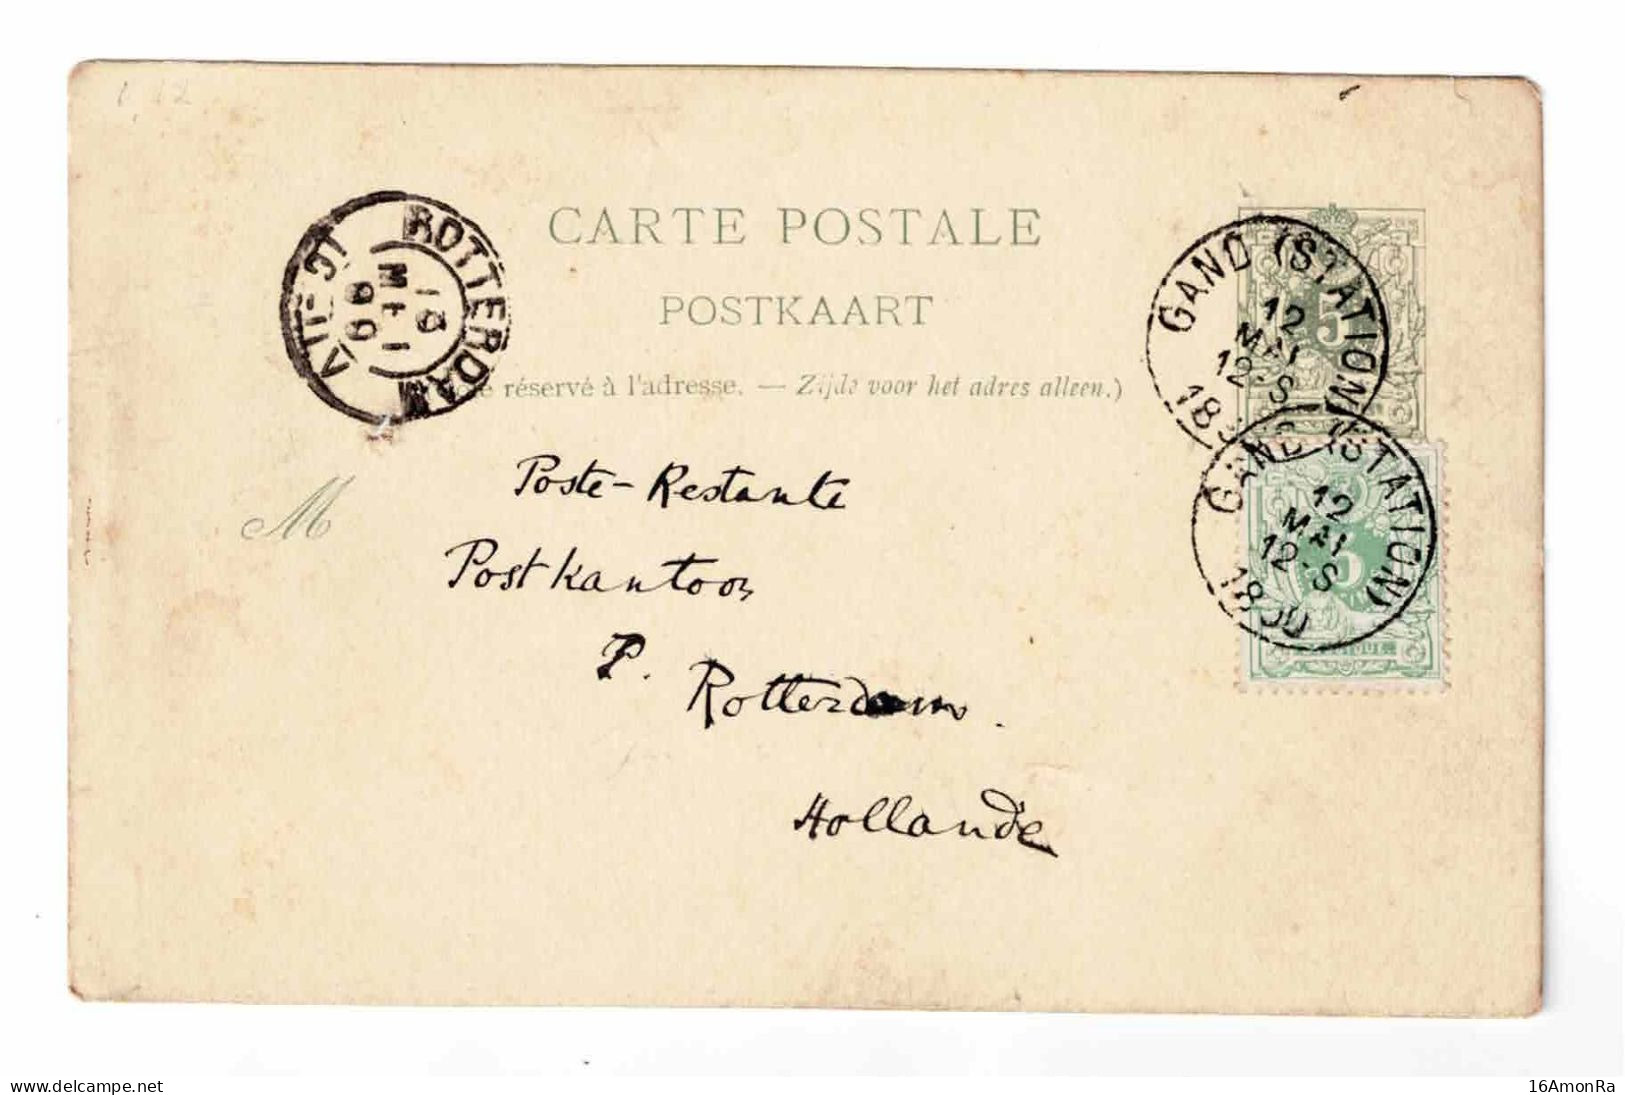 CARTE POSTALE
POSTKAART
e réservé à l'adresse. — Zijde voor het adres alleen.)
ROTTERDAM
GAND (STATION)
12
MAI
12-S
5
GAND (STATION)
12
MAI
12-S
5
M
Poste-Restante
Postkantoor
P. Rotterdam.
Hollande
www.delcampe.net
16AmonRa